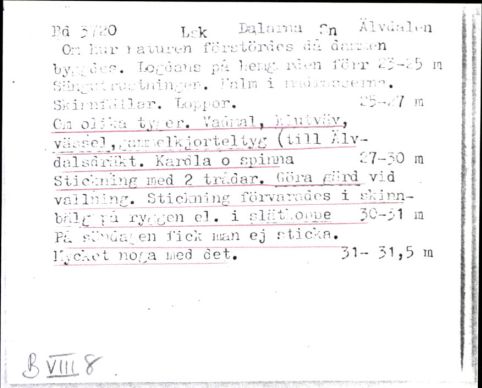 Bd 3720 Lsk Dalarna Sn Älvdalen
Om hur naturen förstördes då dammen
byggdes. Logdans på hemgården förr 23-25 m
Sängutrustningen. Halm i madrasserna.
Skinnfällar. Loppor. 25-27 m
Om olika tyger. Vadmal, klutväv,
vävsel, kjorteltyg (till Älv-
dalsdräkt. Kardla o spinna 27-30 m
Stickning med 2 trådar. Göra gärd vid
vallning. Stickning förvarades i skinn-
bälg på ryggen el. i slätkoppe 30-31 m
På söndagen fick man ej sticka.
Mycket noga med det. 31- 31,5 m
B VIII 8